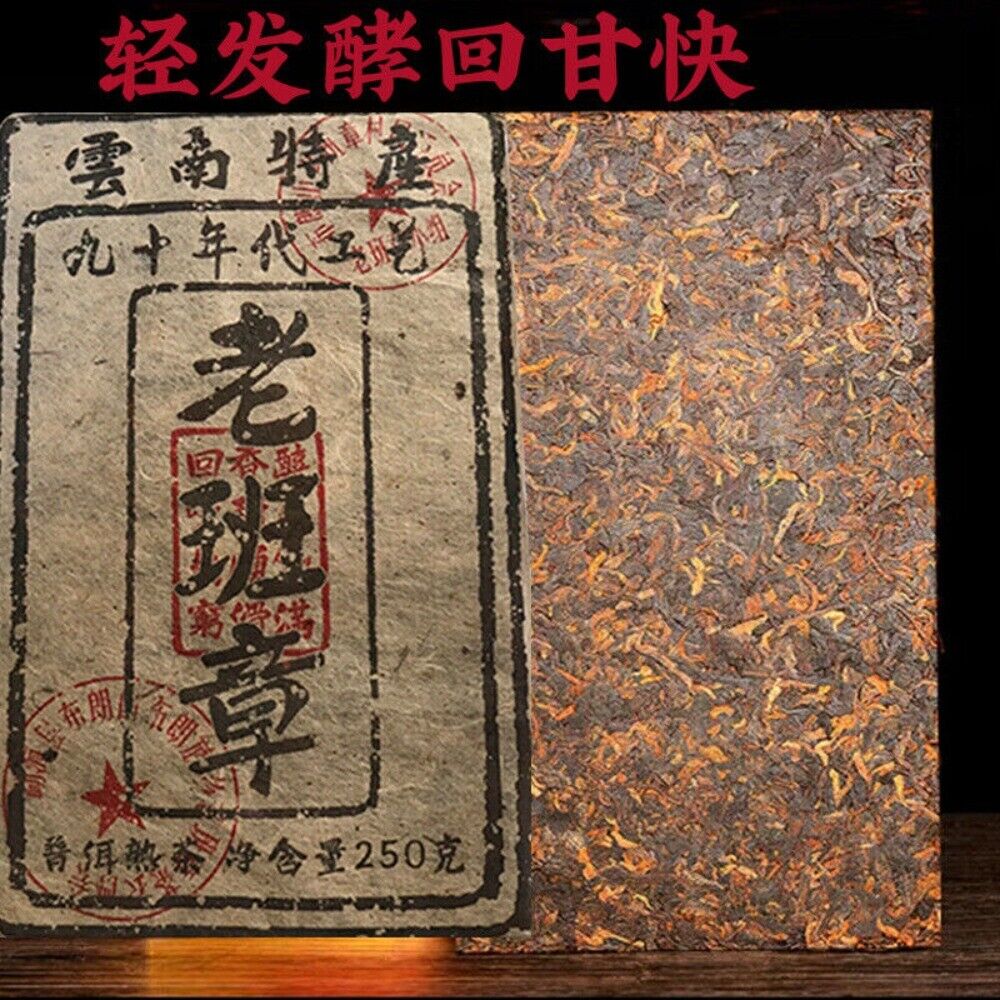 轻发酵回甘快
雲南特産
九十年代工艺
老班章
回香醇
普洱熟茶 净含量250克